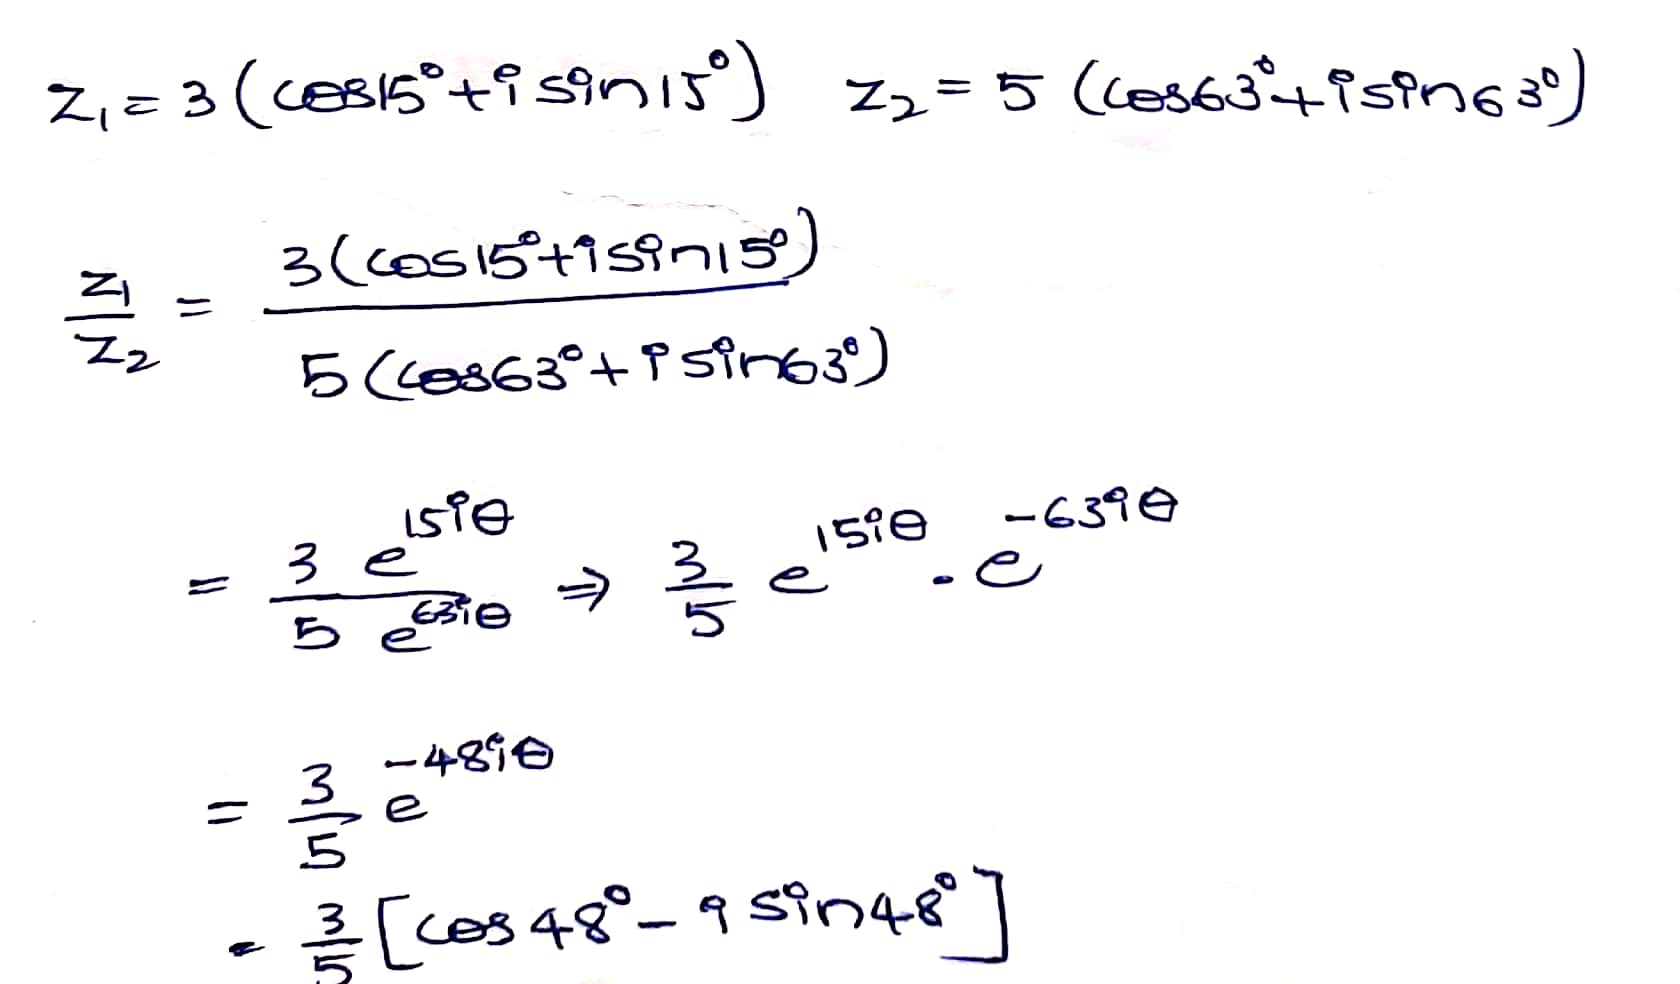 z₁ = 3 (cos15° + i sin15°) z₂ = 5 (cos63° + i sin63°)
z₁/z₂ = 3(cos15° + i sin15°) / 5(cos63° + i sin63°)
= 3 e^(15iθ) / 5 e^(63iθ) ⇒ 3/5 e^(15iθ) . e^(-63iθ)
= 3/5 e^(-48iθ)
= 3/5 [cos48° - i sin48°]